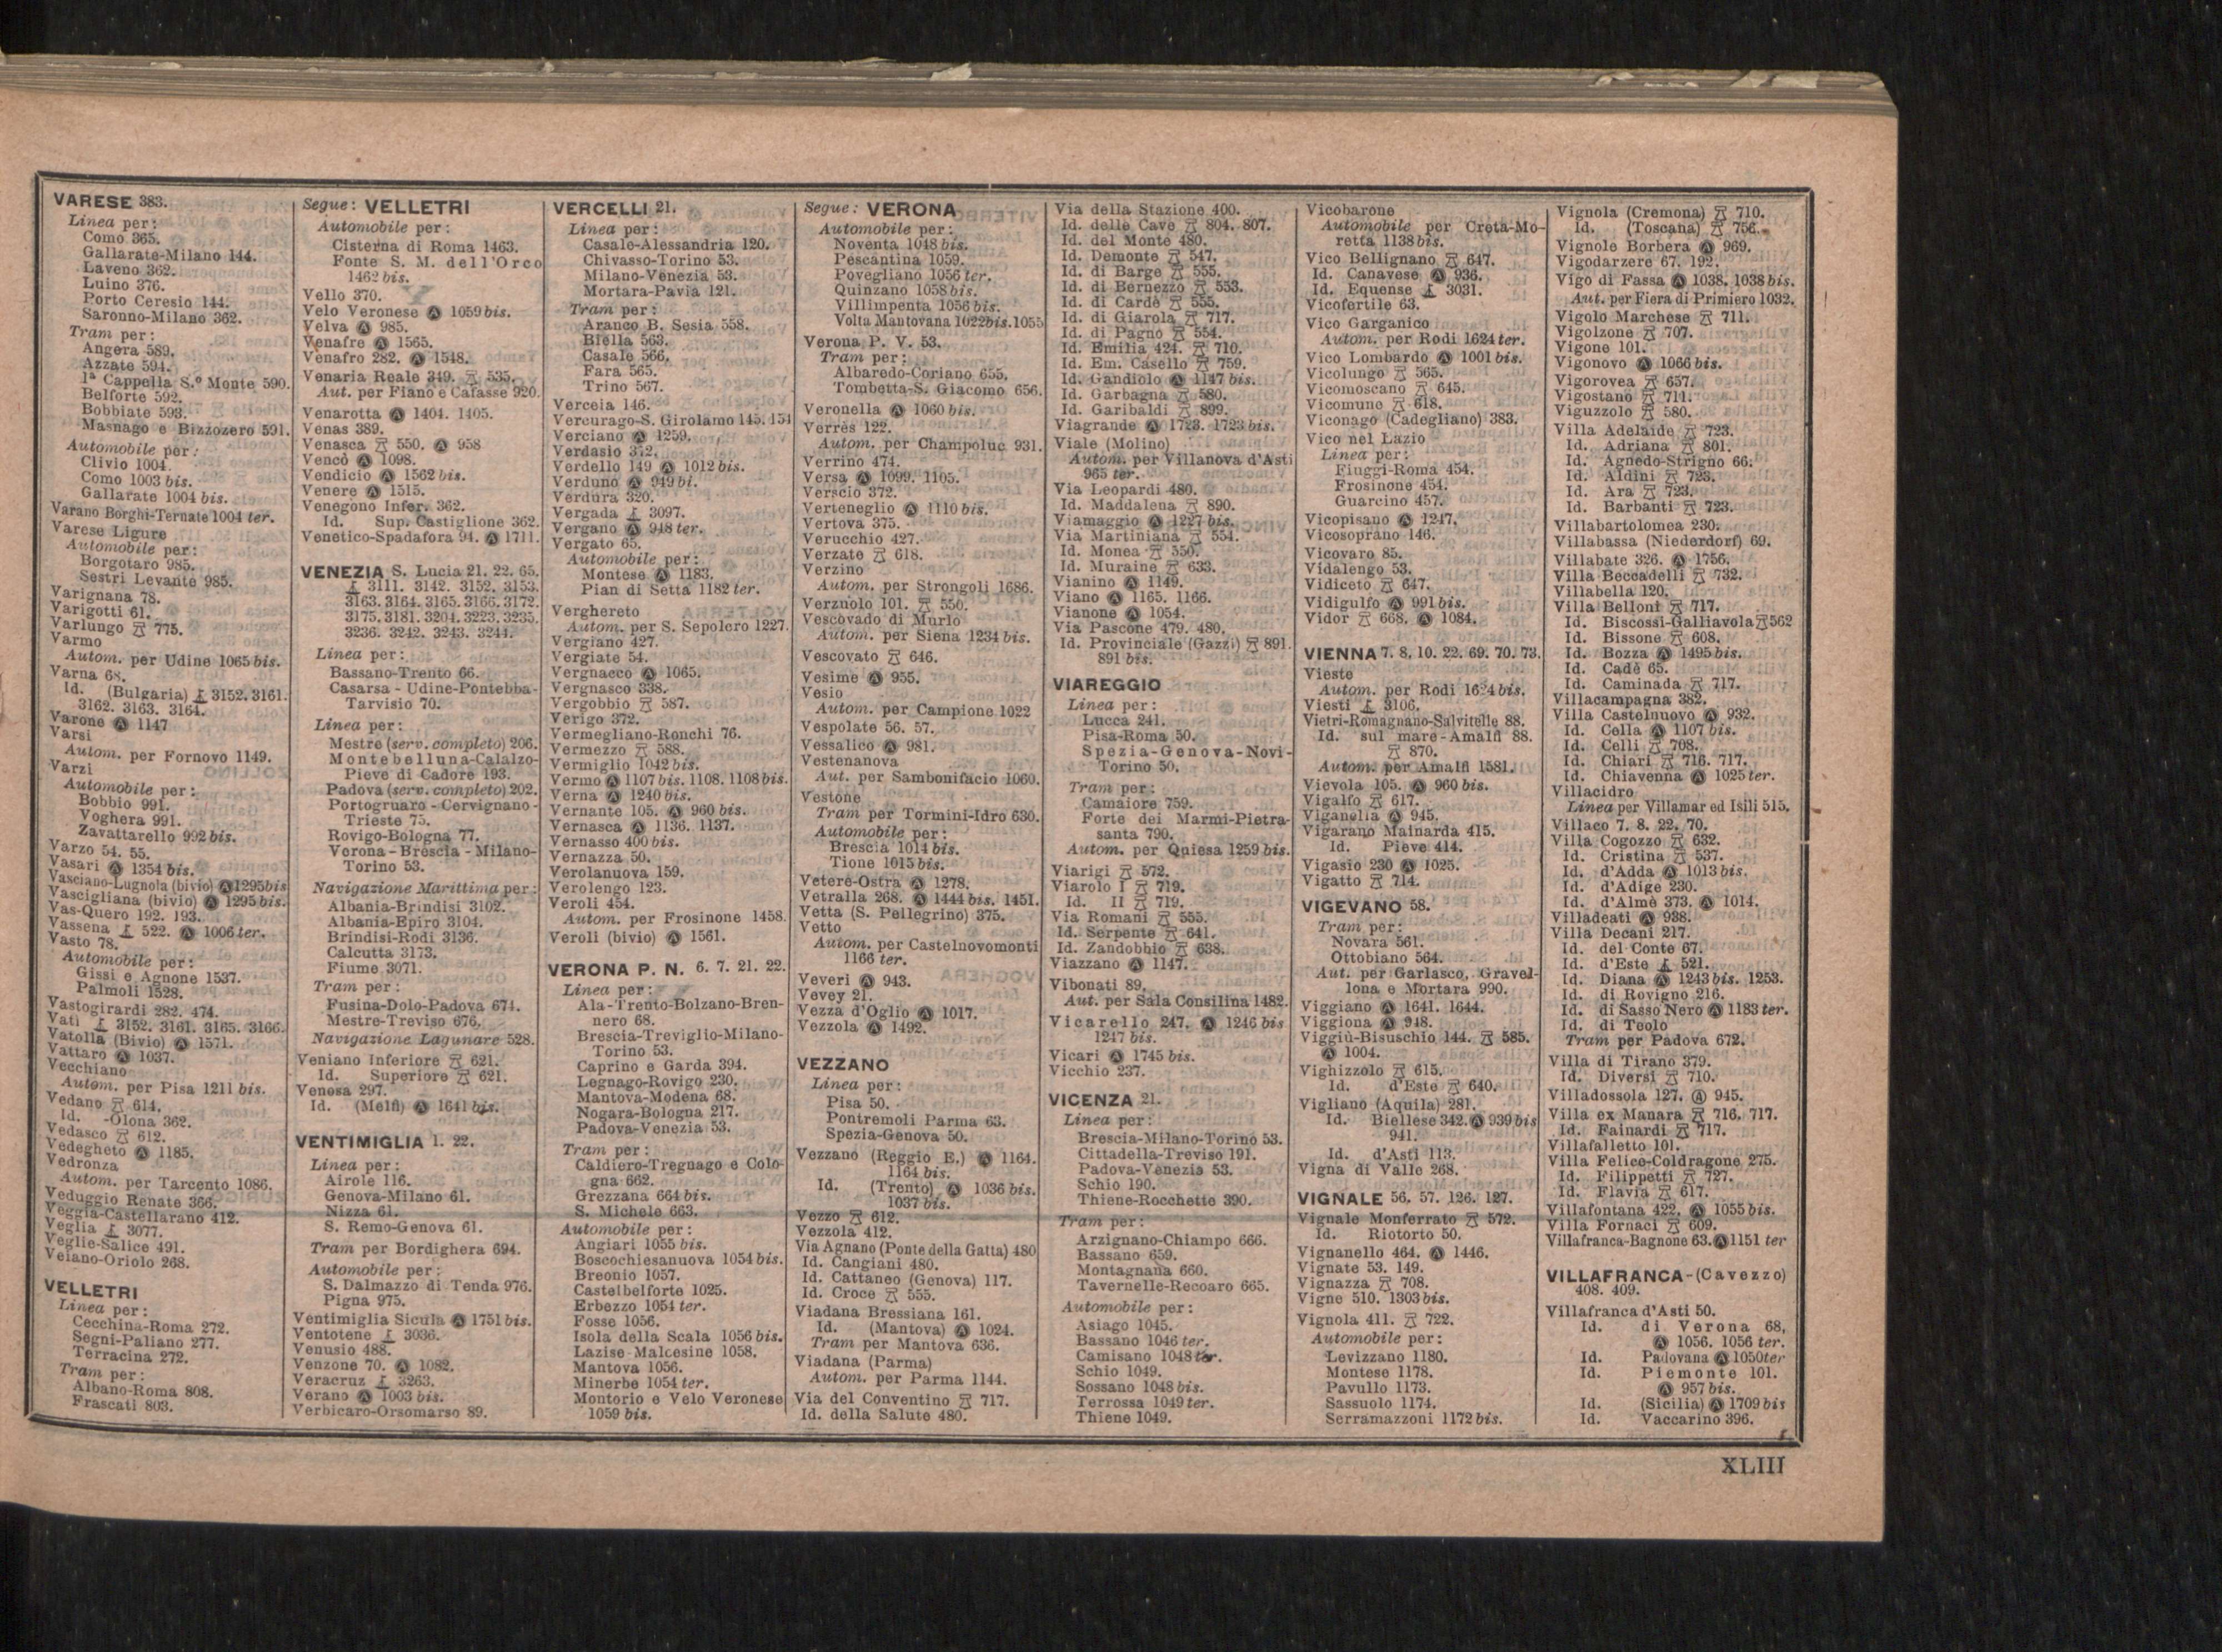 VARESE 383.
Linea per:
Como 365.
Gallarate-Milano 144.
Laveno 362.
Luino 376.
Porto Ceresio 144.
Saronno-Milano 362.
Tram per:
Angera 589.
Azzate 594.
1ª Cappella S.º Monte 590.
Belforte 592.
Bobbiate 593.
Masnago e Bizzozero 591.
Automobile per:
Clivio 1004.
Como 1003 bis.
Gallarate 1004 bis.
Varano Borghi-Ternate 1004 ter.
Varese Ligure
Automobile per:
Borgotaro 985.
Sestri Levante 985.
Varignana 78.
Varigotti 61.
Varlungo 775.
Varmo
Autom. per Udine 1065 bis.
Varna 68.
Id. (Bulgaria) 3152. 3161.
3162. 3163. 3164.
Varone Ⓐ 1147
Varsi
Autom. per Fornovo 1149.
Varzi
Automobile per:
Bobbio 991.
Voghera 991.
Zavattarello 992 bis.
Varzo 54. 55.
Vasari Ⓐ 1354 bis.
Vasciano-Lugnola (bivio) Ⓐ 1295bis
Vascigliana (bivio) Ⓐ 1295 bis.
Vas-Quero 192. 193.
Vassena 522. Ⓐ 1006 ter.
Vasto 78.
Automobile per:
Gissi e Agnone 1537.
Palmoli 1528.
Vastogirardi 282. 474.
Vati 3152. 3161. 3165. 3166.
Vatolla (Bivio) Ⓐ 1571.
Vattaro Ⓐ 1037.
Vecchiano
Autom. per Pisa 1211 bis.
Vedano 614.
Id. -Olona 362.
Vedasco 612.
Vedegheto Ⓐ 1185.
Vedronza
Autom. per Tarcento 1086.
Veduggio Renate 366.
Veggia-Castellarano 412.
Veglia 3077.
Veglie-Salice 491.
Veiano-Oriolo 268.
VELLETRI
Linea per:
Cecchina-Roma 272.
Segni-Paliano 277.
Terracina 272.
Tram per:
Albano-Roma 808.
Frascati 803.
Segue: VELLETRI
Automobile per:
Cisterna di Roma 1463.
Fonte S. M. dell'Orco
1462 bis.
Vello 370.
Velo Veronese Ⓐ 1059 bis.
Velva Ⓐ 985.
Venafre Ⓐ 1565.
Venafro 282. Ⓐ 1548.
Venaria Reale 349. 535.
Aut. per Fiano e Cafasse 920.
Venarotta Ⓐ 1404. 1405.
Venas 389.
Venasca 550. Ⓐ 958
Vencò Ⓐ 1098.
Vendicio Ⓐ 1562 bis.
Venere Ⓐ 1515.
Venegono Infer. 362.
Id. Sup. Castiglione 362.
Venetico-Spadafora 94. Ⓐ 1711.
VENEZIA S. Lucia 21. 22. 65.
3111. 3142. 3152. 3153.
3163. 3164. 3165. 3166. 3172.
3175. 3181. 3204. 3223. 3235.
3236. 3242. 3243. 3244.
Linea per:
Bassano-Trento 66.
Casarsa - Udine-Pontebba-
Tarvisio 70.
Linea per:
Mestre (serv. completo) 206.
Montebelluna-Calalzo-
Pieve di Cadore 193.
Padova (serv. completo) 202.
Portogruaro - Cervignano -
Trieste 75.
Rovigo-Bologna 77.
Verona - Brescia - Milano-
Torino 53.
Navigazione Marittima per:
Albania-Brindisi 3102.
Albania-Epiro 3104.
Brindisi-Rodi 3136.
Calcutta 3173.
Fiume 3071.
Tram per:
Fusina-Dolo-Padova 674.
Mestre-Treviso 676.
Navigazione Lagunare 528.
Veniano Inferiore 621.
Id. Superiore 621.
Venosa 297.
Id. (Melfi) Ⓐ 1641 bis.
VENTIMIGLIA 1. 22.
Linea per:
Airole 116.
Genova-Milano 61.
Nizza 61.
S. Remo-Genova 61.
Tram per Bordighera 694.
Automobile per:
S. Dalmazzo di Tenda 976.
Pigna 975.
Ventimiglia Sicula Ⓐ 1751 bis.
Ventotene 3036.
Venusio 488.
Venzone 70. Ⓐ 1082.
Veracruz 3263.
Verano Ⓐ 1003 bis.
Verbicaro-Orsomarso 89.
VERCELLI 21.
Linea per:
Casale-Alessandria 120.
Chivasso-Torino 53.
Milano-Venezia 53.
Mortara-Pavia 121.
Tram per:
Aranco B. Sesia 558.
Biella 563.
Casale 566.
Fara 565.
Trino 567.
Verceia 146.
Vercurago-S. Girolamo 145. 154
Verciano Ⓐ 1259.
Verdasio 372.
Verdello 149 Ⓐ 1012 bis.
Verduno Ⓐ 949 bi.
Verdura 320.
Vergada 3097.
Vergano Ⓐ 948 ter.
Vergato 65.
Automobile per:
Montese Ⓐ 1183.
Pian di Setta 1182 ter.
Verghereto
Autom. per S. Sepolcro 1227.
Vergiano 427.
Vergiate 54.
Vergnacco Ⓐ 1065.
Vergnasco 338.
Vergobbio 587.
Verigo 372.
Vermegliano-Ronchi 76.
Vermezzo 588.
Vermiglio 1042 bis.
Vermo Ⓐ 1107 bis. 1108. 1108 bis.
Verna Ⓐ 1240 bis.
Vernante 105. Ⓐ 960 bis.
Vernasca Ⓐ 1136. 1137.
Vernasso 400 bis.
Vernazza 50.
Verolanuova 159.
Verolengo 123.
Veroli 454.
Autom. per Frosinone 1458.
Veroli (bivio) Ⓐ 1561.
VERONA P. N. 6. 7. 21. 22.
Linea per:
Ala-Trento-Bolzano-Bren-
nero 68.
Brescia-Treviglio-Milano-
Torino 53.
Caprino e Garda 394.
Legnago-Rovigo 230.
Mantova-Modena 68.
Nogara-Bologna 217.
Padova-Venezia 53.
Tram per:
Caldiero-Tregnago e Colo-
gna 662.
Grezzana 664 bis.
S. Michele 663.
Automobile per:
Angiari 1055 bis.
Boscochiesanuova 1054 bis.
Breonio 1057.
Castelbelforte 1025.
Erbezzo 1054 ter.
Fosse 1056.
Isola della Scala 1056 bis.
Lazise-Malcesine 1058.
Mantova 1056.
Minerbe 1054 ter.
Montorio e Velo Veronese
1059 bis.
Segue: VERONA
Automobile per:
Noventa 1048 bis.
Pescantina 1059.
Povegliano 1056 ter.
Quinzano 1058 bis.
Villimpenta 1056 bis.
Volta Mantovana 1022bis. 1055
Verona P. V. 53.
Tram per:
Albaredo-Coriano 655.
Tombetta-S. Giacomo 656.
Veronella Ⓐ 1060 bis.
Verrès 122.
Autom. per Champoluc 931.
Verrino 474.
Versa Ⓐ 1099. 1105.
Verscio 372.
Verteneglio Ⓐ 1110 bis.
Vertova 375.
Verucchio 427.
Verzate 618.
Verzino
Autom. per Strongoli 1686.
Verzuolo 101. 550.
Vescovado di Murlo
Autom. per Siena 1234 bis.
Vescovato 646.
Vesime Ⓐ 955.
Vesio
Autom. per Campione 1022
Vespolate 56. 57.
Vessalico Ⓐ 981.
Vestenanova
Aut. per Sambonifacio 1060.
Vestone
Tram per Tormini-Idro 630.
Automobile per:
Brescia 1014 bis.
Tione 1015 bis.
Vetere-Ostra Ⓐ 1278.
Vetralla 268. Ⓐ 1444 bis. 1451.
Vetta (S. Pellegrino) 375.
Vetto
Autom. per Castelnovomonti
1166 ter.
Veveri Ⓐ 943.
Vevey 21.
Vezza d'Oglio Ⓐ 1017.
Vezzola Ⓐ 1492.
VEZZANO
Linea per:
Pisa 50.
Pontremoli Parma 63.
Spezia-Genova 50.
Vezzano (Reggio E.) Ⓐ 1164.
1164 bis.
Id. (Trento) Ⓐ 1036 bis.
1037 bis.
Vezzo 612.
Vezzola 412.
Via Agnano (Ponte della Gatta) 480
Id. Cangiani 480.
Id. Cattaneo (Genova) 117.
Id. Croce 555.
Viadana Bressiana 161.
Id. (Mantova) Ⓐ 1024.
Tram per Mantova 636.
Viadana (Parma)
Autom. per Parma 1144.
Via del Conventino 717.
Id. della Salute 480.
Via della Stazione 400.
Id. delle Cave 804. 807.
Id. del Monte 480.
Id. Demonte 547.
Id. di Barge 555.
Id. di Bernezzo 553.
Id. di Cardè 555.
Id. di Giarola 717.
Id. di Pagno 554.
Id. Emilia 424. 710.
Id. Em. Casello 759.
Id. Gandiolo Ⓐ 1147 bis.
Id. Garbagna 580.
Id. Garibaldi 899.
Viagrande Ⓐ 1723. 1723 bis.
Viale (Molino)
Autom. per Villanova d'Asti
965 ter.
Via Leopardi 480.
Id. Maddalena 890.
Viamaggio Ⓐ 1227 bis.
Via Martiniana 554.
Id. Monea 550.
Id. Muraine 633.
Vianino Ⓐ 1149.
Viano Ⓐ 1165. 1166.
Vianone Ⓐ 1054.
Via Pascone 479. 480.
Id. Provinciale (Gazzi) 891.
891 bis.
VIAREGGIO
Linea per:
Lucca 241.
Pisa-Roma 50.
Spezia-Genova-Novi-
Torino 50.
Tram per:
Camaiore 759.
Forte dei Marmi-Pietra-
santa 790.
Autom. per Quiesa 1259 bis.
Viarigi 572.
Viarolo I 719.
Id. II 719.
Via Romani 555.
Id. Serpente 641.
Id. Zandobbio 638.
Viazzano Ⓐ 1147.
Vibonati 89.
Aut. per Sala Consilina 1482.
Vicarello 247. Ⓐ 1246 bis
1247 bis.
Vicari Ⓐ 1745 bis.
Vicchio 237.
VICENZA 21.
Linea per:
Brescia-Milano-Torino 53.
Cittadella-Treviso 191.
Padova-Venezia 53.
Schio 190.
Thiene-Rocchette 390.
Tram per:
Arzignano-Chiampo 666.
Bassano 659.
Montagnana 660.
Tavernelle-Recoaro 665.
Automobile per:
Asiago 1045.
Bassano 1046 ter.
Camisano 1048 ter.
Schio 1049.
Sossano 1048 bis.
Terrossa 1049 ter.
Thiene 1049.
Vicobarone
Automobile per Creta-Mo-
retta 1138 bis.
Vico Bellignano 647.
Id. Canavese Ⓐ 936.
Id. Equense 3031.
Vicofertile 63.
Vico Garganico
Autom. per Rodi 1624 ter.
Vico Lombardo Ⓐ 1001 bis.
Vicolungo 565.
Vicomoscano 645.
Vicomune 618.
Viconago (Cadegliano) 383.
Vico nel Lazio
Linea per:
Fiuggi-Roma 454.
Frosinone 454.
Guarcino 457.
Vicopisano Ⓐ 1247.
Vicosoprano 146.
Vicovaro 85.
Vidalengo 53.
Vidiceto 647.
Vidigulfo Ⓐ 991 bis.
Vidor 668. Ⓐ 1084.
VIENNA 7. 8. 10. 22. 69. 70. 73.
Vieste
Autom. per Rodi 1624 bis.
Viesti 3106.
Vietri-Romagnano-Salvitelle 88.
Id. sul mare-Amalfi 88.
870.
Autom. per Amalfi 1581.
Vievola 105. Ⓐ 960 bis.
Vigalfo 617.
Viganella Ⓐ 945.
Vigarano Mainarda 415.
Id. Pieve 414.
Vigasio 230 Ⓐ 1025.
Vigatto 714.
VIGEVANO 58.
Tram per:
Novara 561.
Ottobiano 564.
Aut. per Garlasco, Gravel-
lona e Mortara 990.
Viggiano Ⓐ 1641. 1644.
Viggiona Ⓐ 948.
Viggiù-Bisuschio 144. 585.
Ⓐ 1004.
Vighizzolo 615.
Id. d'Este 640.
Vigliano (Aquila) 281.
Id. Biellese 342. Ⓐ 939 bis
941.
Id. d'Asti 113.
Vigna di Valle 268.
VIGNALE 56. 57. 126. 127.
Vignale Monferrato 572.
Id. Riotorto 50.
Vignanello 464. Ⓐ 1446.
Vignate 53. 149.
Vignazza 708.
Vigne 510. 1303 bis.
Vignola 411. 722.
Automobile per:
Levizzano 1180.
Montese 1178.
Pavullo 1173.
Sassuolo 1174.
Serramazzoni 1172 bis.
Vignola (Cremona) 710.
Id. (Toscana) 756.
Vignole Borbera Ⓐ 969.
Vigodarzere 67. 192.
Vigo di Fassa Ⓐ 1038. 1038 bis.
Aut. per Fiera di Primiero 1032.
Vigolo Marchese 711.
Vigolzone 707.
Vigone 101.
Vigonovo Ⓐ 1066 bis.
Vigorovea 657.
Vigostano 711.
Viguzzolo 580.
Villa Adelaide 723.
Id. Adriana 801.
Id. Agnedo-Strigno 66.
Id. Aldini 723.
Id. Ara 723.
Id. Barbanti 723.
Villabartolomea 230.
Villabassa (Niederdorf) 69.
Villabate 326. Ⓐ 1756.
Villa Beccadelli 732.
Villabella 120.
Villa Belloni 717.
Id. Biscossi-Galliavola 562
Id. Bissone 608.
Id. Bozza Ⓐ 1495 bis.
Id. Cadè 65.
Id. Caminada 717.
Villacampagna 382.
Villa Castelnuovo Ⓐ 932.
Id. Cella Ⓐ 1107 bis.
Id. Celli 708.
Id. Chiari 716. 717.
Id. Chiavenna Ⓐ 1025 ter.
Villacidro
Linea per Villamar ed Isili 515.
Villaco 7. 8. 22. 70.
Villa Cogozzo 632.
Id. Cristina 537.
Id. d'Adda Ⓐ 1013 bis.
Id. d'Adige 230.
Id. d'Almè 373. Ⓐ 1014.
Villadeati Ⓐ 938.
Villa Decani 217.
Id. del Conte 67.
Id. d'Este 521.
Id. Diana Ⓐ 1243 bis. 1253.
Id. di Rovigno 216.
Id. di Sasso Nero Ⓐ 1183 ter.
Id. di Teolo
Tram per Padova 672.
Villa di Tirano 379.
Id. Diversi 710.
Villadossola 127. Ⓐ 945.
Villa ex Manara 716. 717.
Id. Fainardi 717.
Villafalletto 101.
Villa Felice-Coldragone 275.
Id. Filippetti 727.
Id. Flavia 617.
Villafontana 422. Ⓐ 1055 bis.
Villa Fornaci 609.
Villafranca-Bagnone 63. Ⓐ 1151 ter
VILLAFRANCA-(Cavezzo)
408. 409.
Villafranca d'Asti 50.
Id. di Verona 68,
Ⓐ 1056. 1056 ter.
Id. Padovana Ⓐ 1050ter
Id. Piemonte 101.
Ⓐ 957 bis.
Id. (Sicilia) Ⓐ 1709 bis
Id. Vaccarino 396.
XLIII